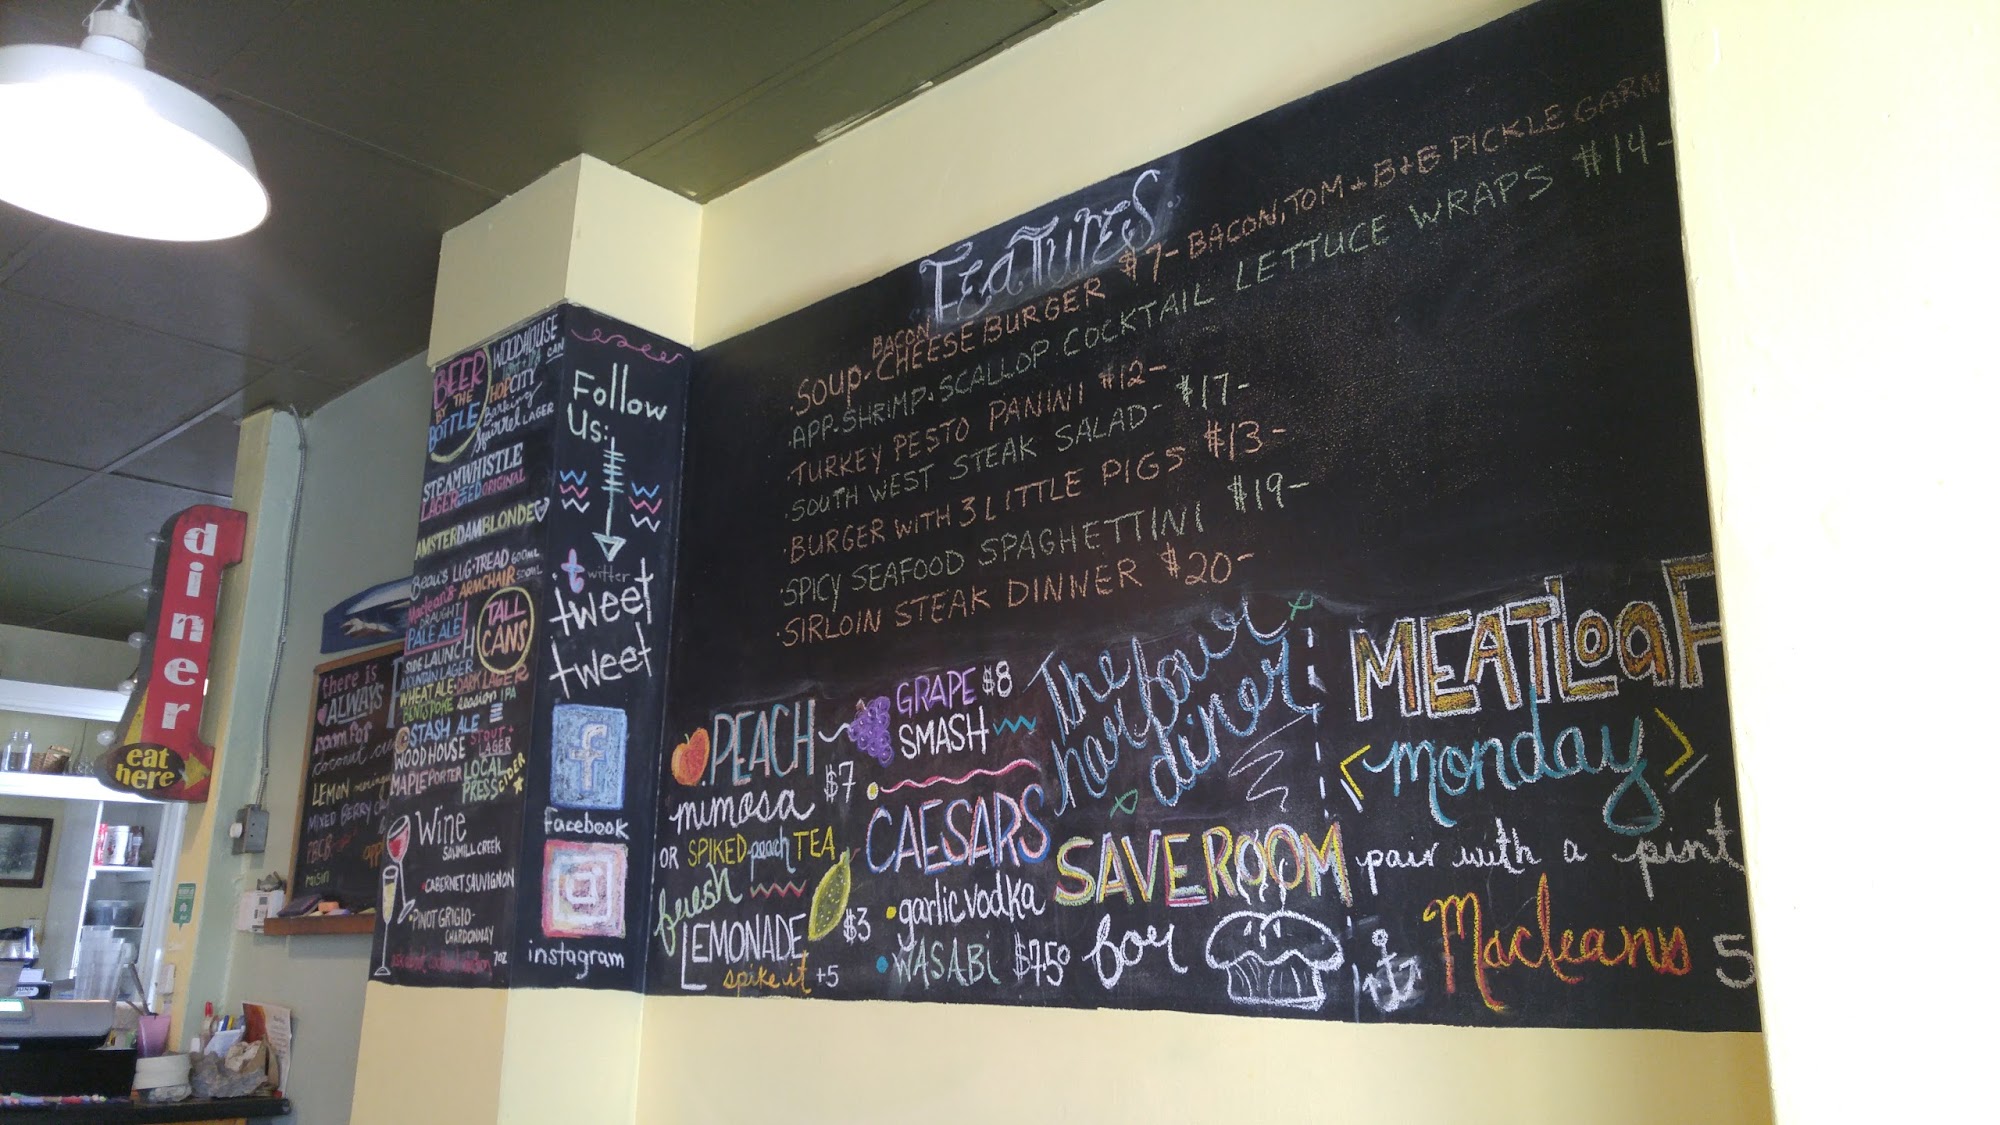 diner
eat
here
there is
ALWAYS
room for
coconut
LEMON
MIXED BERRY
PBCB
raisin
BEER
BY THE
BOTTLE
WOODHOUSE
CAN
HOPCITY
Barking
Squirrel LAGER
STEAMWHISTLE
LAGER
ORIGINAL
AMSTERDAM BLONDE
Beau's LUG·TREAD 600ML
Maclean's ARMCHAIR 500ML
DRAUGHT
PALE ALE
TALL
CANS
SIDE LAUNCH
MOUNTAIN LAGER
WHEAT ALE DARK LAGER
session IPA
STASH ALE
WOODHOUSE STOUT + LAGER
MAPLE PORTER
LOCAL
PRESS CIDER
Wine
SAWMILL CREEK
CABERNET SAUVIGNON
PINOT GRIGIO-
CHARDONNAY
7oz
Follow
Us:
twitter
tweet
tweet
f
facebook
instagram
FEATURES
BACON
·SOUP·CHEESEBURGER $7- BACON, TOM + B+B PICKLE GARN
·APP·SHRIMP·SCALLOP COCKTAIL LETTUCE WRAPS $14-
·TURKEY PESTO PANINI $12-
·SOUTH WEST STEAK SALAD- $17-
·BURGER WITH 3 LITTLE PIGS $13-
·SPICY SEAFOOD SPAGHETTINI $19-
·SIRLOIN STEAK DINNER $20-
PEACH
mimosa $7
OR SPIKED peach TEA
fresh
LEMONADE $3
spike it +5
GRAPE $8
SMASH
CAESARS
·garlic vodka
·WASABi $7.50
The
harbour
diner
SAVE ROOM
for
MEATLOAF
monday
pair with a pint
Macleans 5